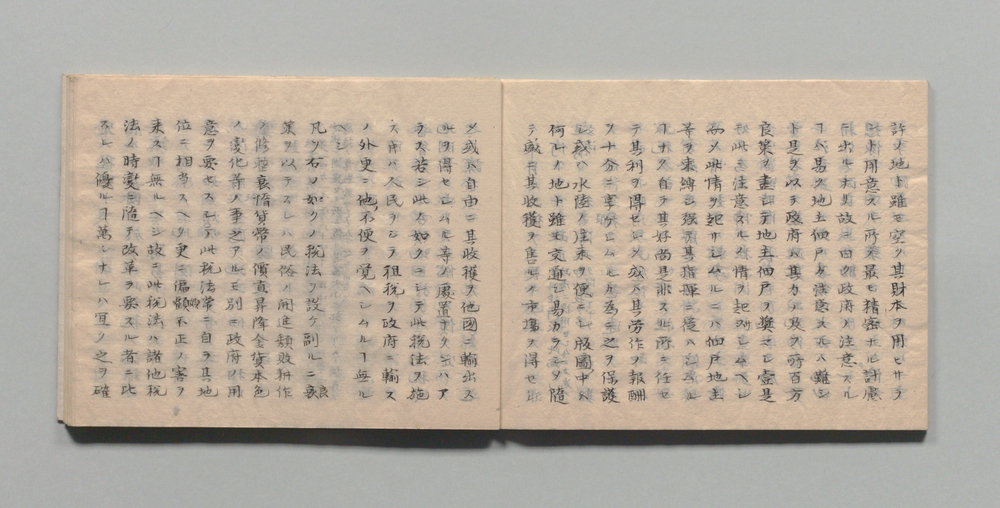 許ノ地ト雖モ空ク其財本ヲ用ヒサラ
用意スル所ヲ最モ精密ナル計慮
出ル故ニ 政府ノ注意スル
易ク地主佃戸ノ注意スルハ難シ
是ヲ以テ政府ハ其力ノ及フ所百方
良策ヲ盡シテ地主佃戸ヲ奨マし
此ニ注意スルノ情ヲ起サシムヘシ
而メ此情ヲ起サシムルニハ佃戸地主
等ヲ束縛シ 其指揮ニ從ハシムル
ナク自ラ其好尚是非スル所ニ任セ
テ其利ヲ得セシメ或ハ其労作ノ報酬
ヲ十分ニ享ケシムルカ為ニ之ヲ保護
シ或ハ水陸ノ往来ヲ便ニシ版圖中
何レノ地ト雖モ交通シ易カラシメ隨
テ盛ニ其收獲ヲ售ルノ市場ヲ得セ
メ或ハ自由ニ其收獲ヲ他國ニ輸出ス
ルヲ得セシムル等ノ處置ナクンハア
ラス若シ此ノ如クニシテ此税法ヲ施
ス時ハ人民ヲシテ租税ヲ政府ニ輸ス
ノ外更ニ他ノ不便ヲ覚ヘシムルー無ル
ヘシ
凡ソ右ノ如クノ税法ヲ設ケ副ルニ良
策ヲ以テスレハ民俗ノ開進頽敗耕作
衰 貨幣ノ價直昇降金貨本色
ノ変化等ノ事之アルモ別ニ政府ノ用
意ヲ要セスシテ此税法常ニ自ラ其地
位ニ相当スヘク更ニ偏頗不正ノ害ヲ
来スー無ルヘシ故ニ此税法ハ諸他税
法ノ時変ニ隨テ改革ヲ要スル者ニ比
スレハ優ルー萬々ナレハ宜ク之ヲ確